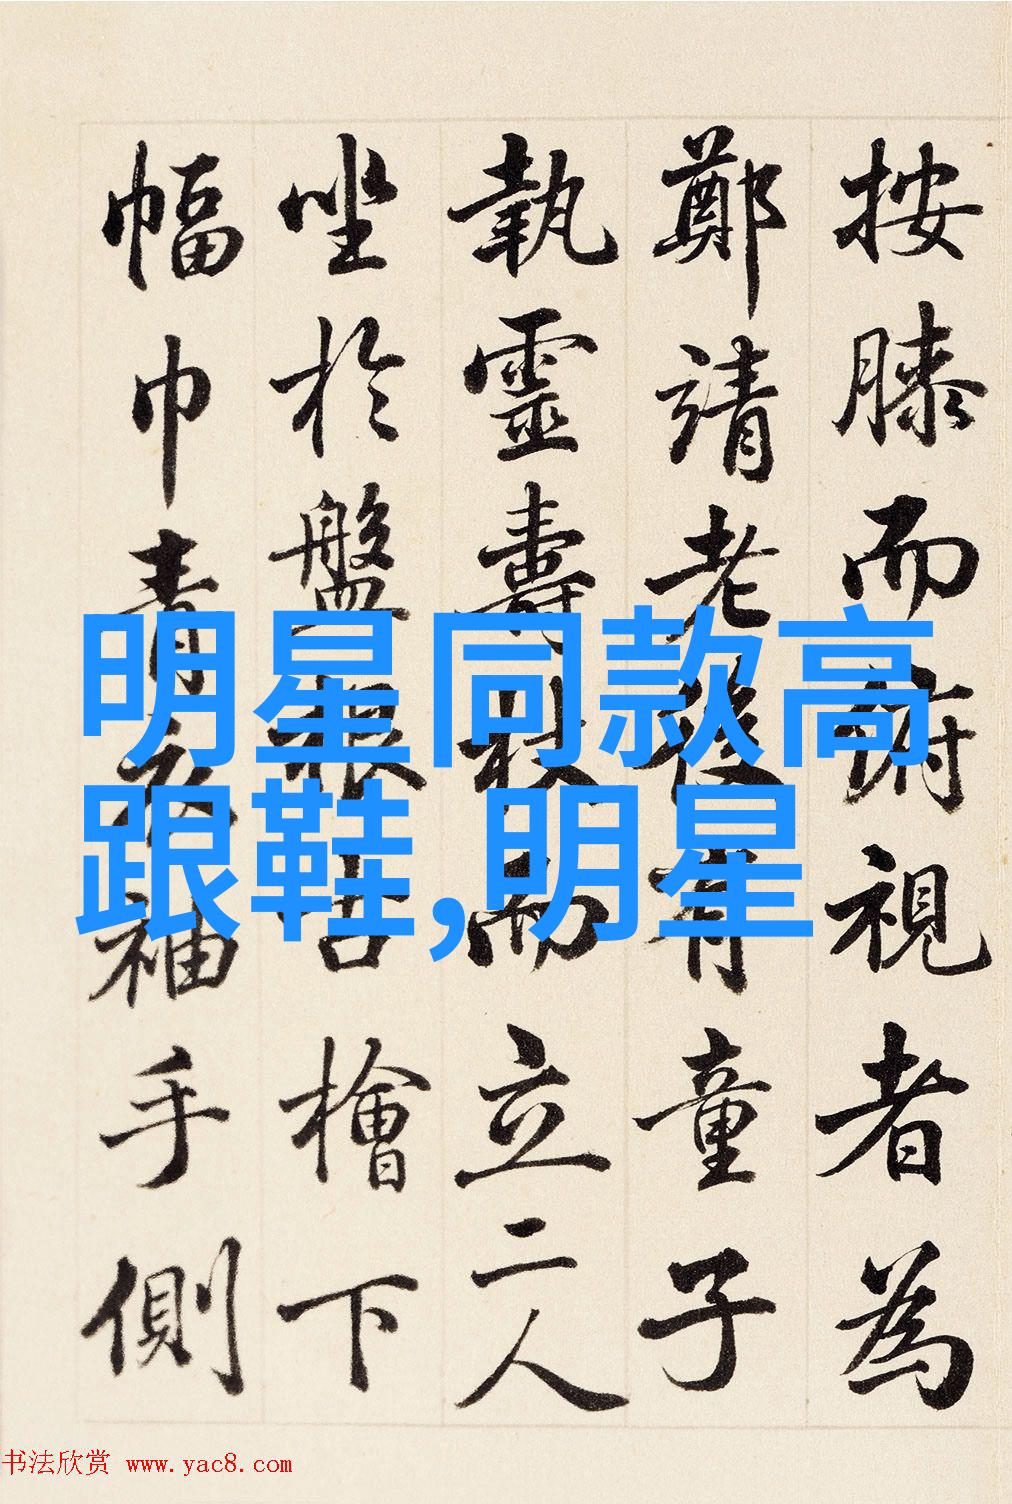 按膝而俯視者為
鄭靖老後有童子
執靈壽杖而立二人
坐於盤根古檜下
幅巾青衣袖手側
明星同款高
跟鞋,明星
书法欣赏 www.yac8.com